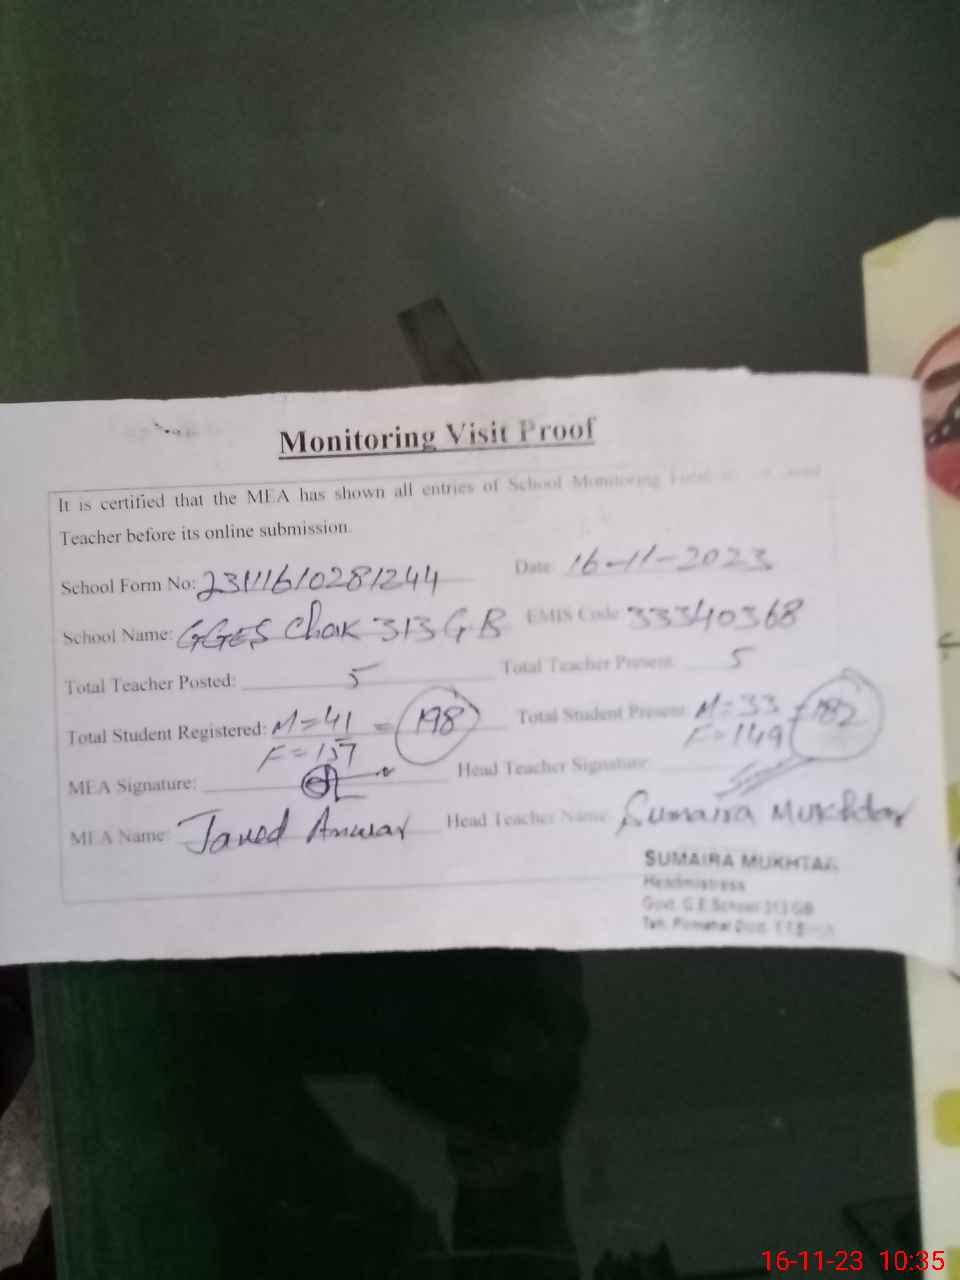 Monitoring Visit Proof
It is certified that the MEA has shown all entries of School Monitoring
Teacher before its online submission.
School Form No: 23111610281244 Date: 16-11-2023
School Name: GGES Chak 313 G.B EMIS Code 33340368
Total Teacher Posted: 5 Total Teacher Present: 5
Total Student Registered: M=41 = 198 Total Student Present: M=33 = 182
F=157 F=149
MEA Signature: Head Teacher Signature:
MEA Name: Javed Anwar Head Teacher Name: Sumaira Mukhtar
SUMAIRA MUKHTAR
Headmistress
Govt. G.E.School 313 GB
Teh. Pirmahal Distt. T.T.
16-11-23 10:35